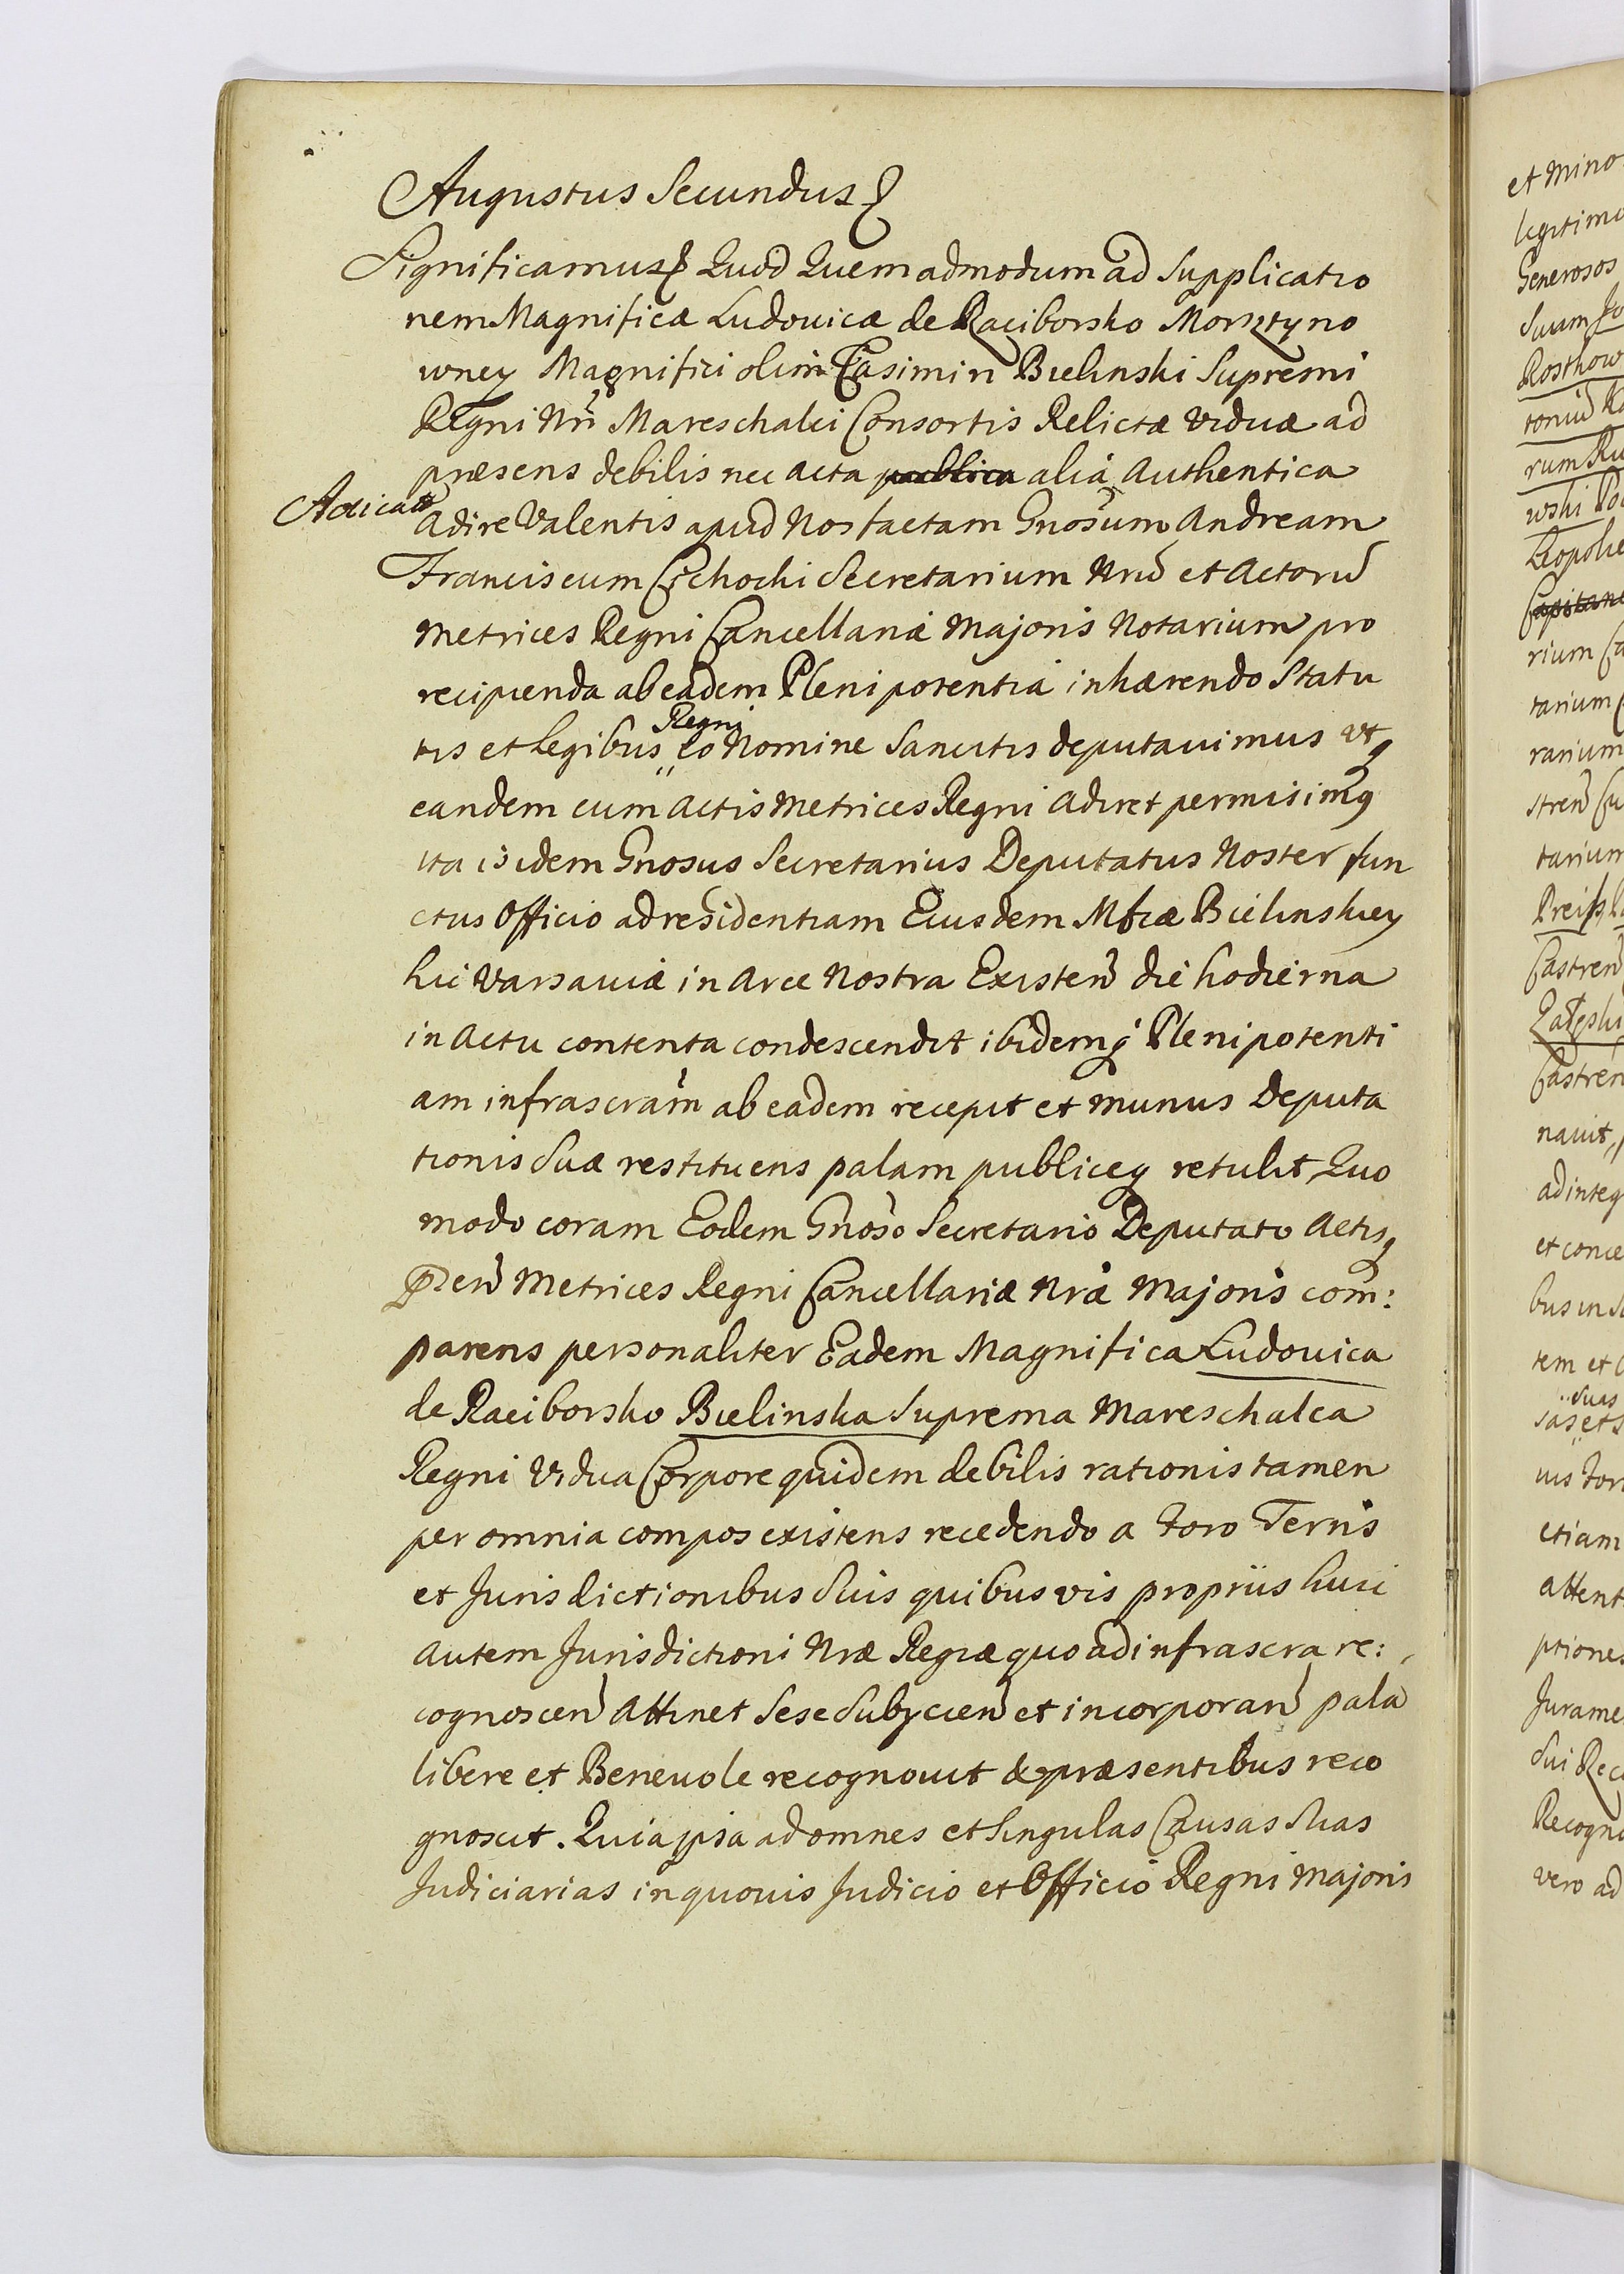 Augustus Secundus
Significamus Quod Quemadmodum ad Supplicatio
nem Magnificæ Ludovicæ de Raciborsko Morsztyno
wney Magnifici olim Casimiri Bielinski Supremi
Regni Nri Mareschalci Consortis Relictæ Viduæ ad
præsens debilis nec acta publica alia Authentica
Adire Valentis apud Nos factam Gnosum Andream
Franciscum Cichocki Secretarium Nrũ et Actorũ
Metrices Regni Cancellariæ Majoris Notarium pro
recipienda ab eadem Plenipotentia inhærendo Statu
tis et Legibus Regni eo Nomine Sancitis deputavimus utq
eandem cum Actis Metrices Regni adiret permisimq
ita is idem Gnosus Secretarius Deputatus Noster fun
ctus Officio ad residentiam Eiusdem Mfcæ Bielinskiey
hic Varsaviæ in Arce Nostra Existen die hodierna
in Actu contenta condescendit ibidemq Plenipotenti
am infrascram ab eadem recepit et munus Deputa
tionis Suæ restituens palam publiceq retulit, Quo
modo coram Eodem Gnoso Secretario Deputato Actisq
Pñen Metrices Regni Cancellariæ Nræ Majoris com:
parens personaliter Eadem Magnifica Ludovica
de Raciborsko Bielinska Suprema Mareschalca
Regni Vidua Corpore quidem debilis rationis tamen
per omnia compos existens recedendo a Foro Terris
et Jurisdictionibus Suis quibusvis propriis huic
autem Jurisdictioni Nræ Regiæ quo ad infrascra re:
cognoscen Attinet Sese Subjicien et incorporan pala
libere et Benevole recognovit & præsentibus reco
gnoscit. Quia ipsa ad omnes et Singulas Causas Suas
Judiciarias in quovis Judicio et Officio Regni Majoris
et mino
legitimo
Generosos
Suum
Rostkow
rum
wski
Leopolie
rium
tarium
rarium
stren
tarium
Preiss
Castren
Castren
navit,
ad integ
et conce
bus in
tem et
suas
sas et
etiam
attent
ptiones
Jurame
Sui Rec
Recogno
vero ad